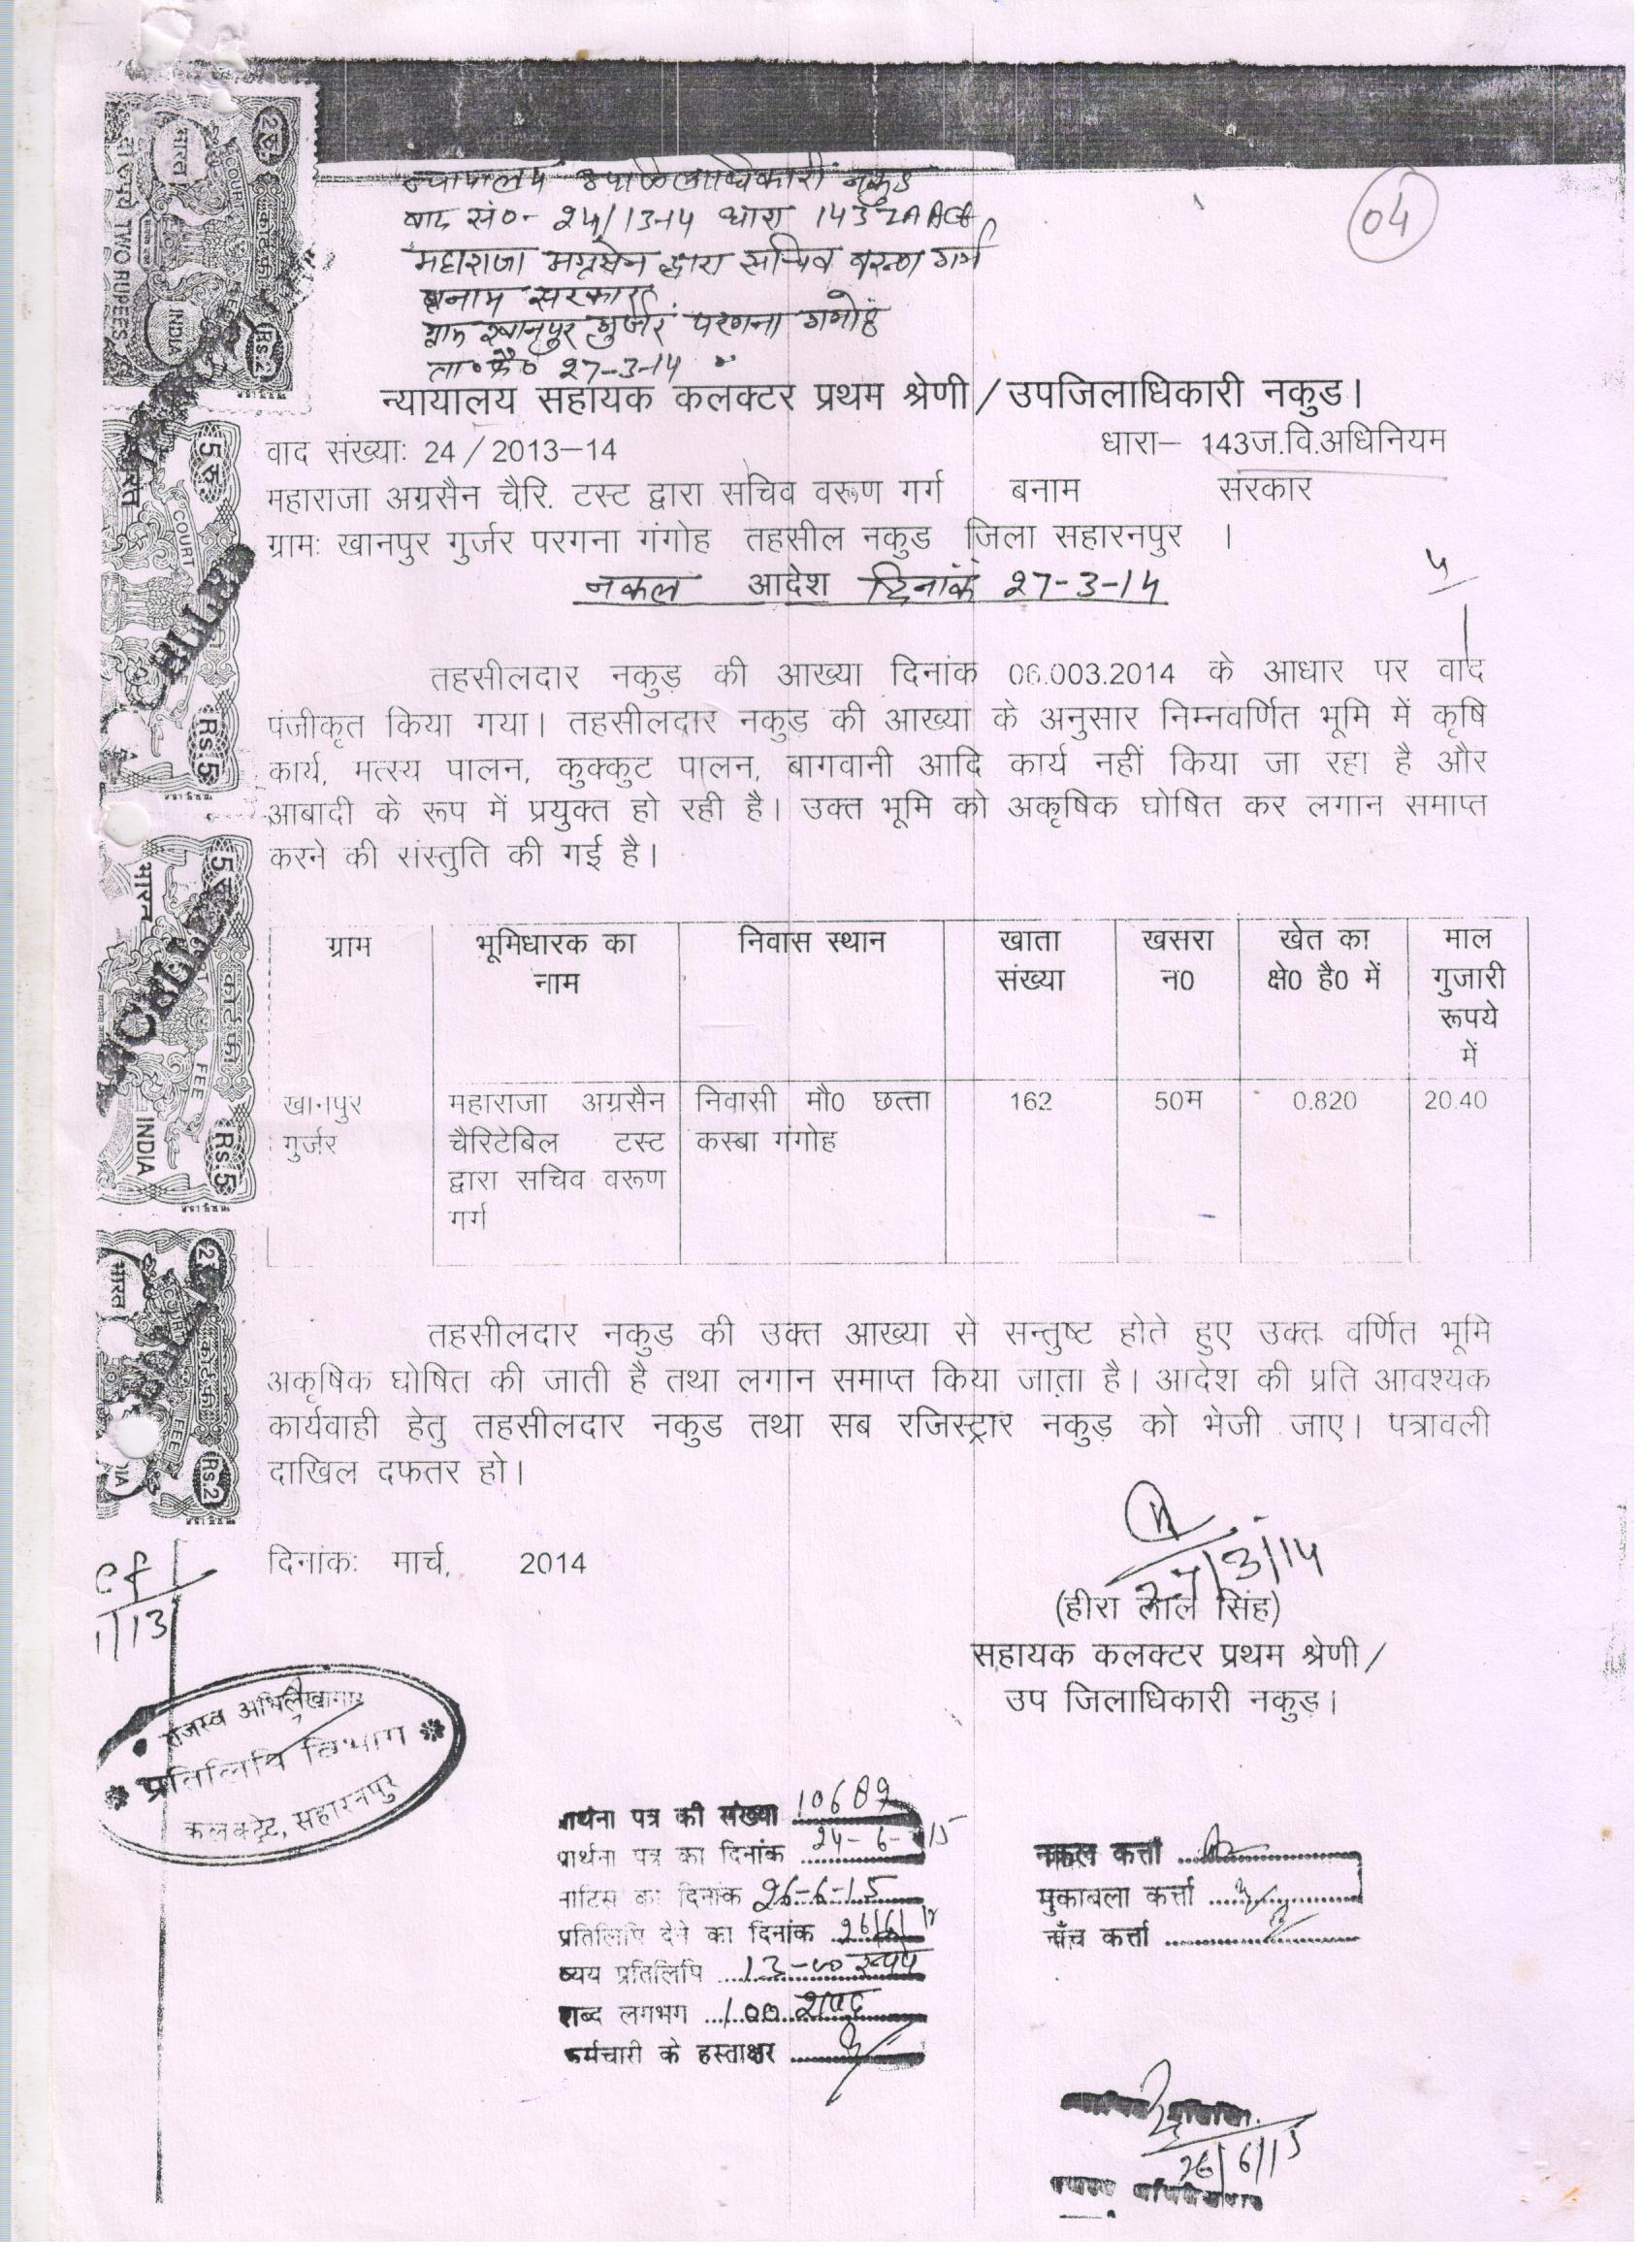 न्यायालय उपजिलाधिकारी नकुड
वाद सं०- 24/13-14 धारा 143 ZA ACt
महाराजा अग्रसेन द्वारा सचिव वरुण गर्ग
बनाम सरकार
ग्राम खानपुर गुर्जर परगना गंगोह
ता०फै० 27-3-14
04
न्यायालय सहायक कलक्टर प्रथम श्रेणी/उपजिलाधिकारी नकुड।
वाद संख्याः 24/2013–14 धारा– 143ज.वि.अधिनियम
महाराजा अग्रसैन चैरि. टस्ट द्वारा सचिव वरूण गर्ग बनाम सरकार
ग्रामः खानपुर गुर्जर परगना गंगोह तहसील नकुड जिला सहारनपुर ।
नकल आदेश दिनांक 27-3-14
तहसीलदार नकुड़ की आख्या दिनांक 06.003.2014 के आधार पर वाद
पंजीकृत किया गया। तहसीलदार नकुड़ की आख्या के अनुसार निम्नवर्णित भूमि में कृषि
कार्य, मत्स्य पालन, कुक्कुट पालन, बागवानी आदि कार्य नहीं किया जा रहा है और
आबादी के रूप में प्रयुक्त हो रही है। उक्त भूमि को अकृषिक घोषित कर लगान समाप्त
करने की संस्तुति की गई है।
ग्राम भूमिधारक का नाम निवास स्थान खाता संख्या खसरा न0 खेत का क्षे0 है0 में माल गुजारी रूपये में
खानपुर महाराजा अग्रसैन निवासी मौ0 छत्ता 162 50म 0.820 20.40
गुर्जर चैरिटेबिल टस्ट कस्बा गंगोह
द्वारा सचिव वरूण
गर्ग
तहसीलदार नकुड की उक्त आख्या से सन्तुष्ट होते हुए उक्त वर्णित भूमि
अकृषिक घोषित की जाती है तथा लगान समाप्त किया जाता है। आदेश की प्रति आवश्यक
कार्यवाही हेतु तहसीलदार नकुड तथा सब रजिस्ट्रार नकुड़ को भेजी जाए। पत्रावली
दाखिल दफतर हो।
दिनांकः मार्च, 2014
27/3/14
(हीरा लाल सिंह)
सहायक कलक्टर प्रथम श्रेणी/
उप जिलाधिकारी नकुड़।
राजस्व अभिलेखागार
प्रतिलिपि विभाग
कलक्ट्रेट, सहारनपुर
प्रार्थना पत्र की संख्या 10689
प्रार्थना पत्र का दिनांक 24-6-15
नोटिस का दिनांक 26-6-15
प्रतिलिपि देने का दिनांक 26/6/15
व्यय प्रतिलिपि 13-00 रूपये
शब्द लगभग 100 शब्द
कर्मचारी के हस्ताक्षर
नकल कर्त्ता
मुकाबला कर्त्ता
जाँच कर्त्ता
26/6/15
2रु. भारत COURT FEE कोर्ट फी INDIA दो रुपये TWO RUPEES Rs.2
5रु. भारत COURT Rs.5
5रु. भारत कोर्ट फी FEE INDIA Rs.5
भारत COURT FEE कोर्ट फी Rs.2